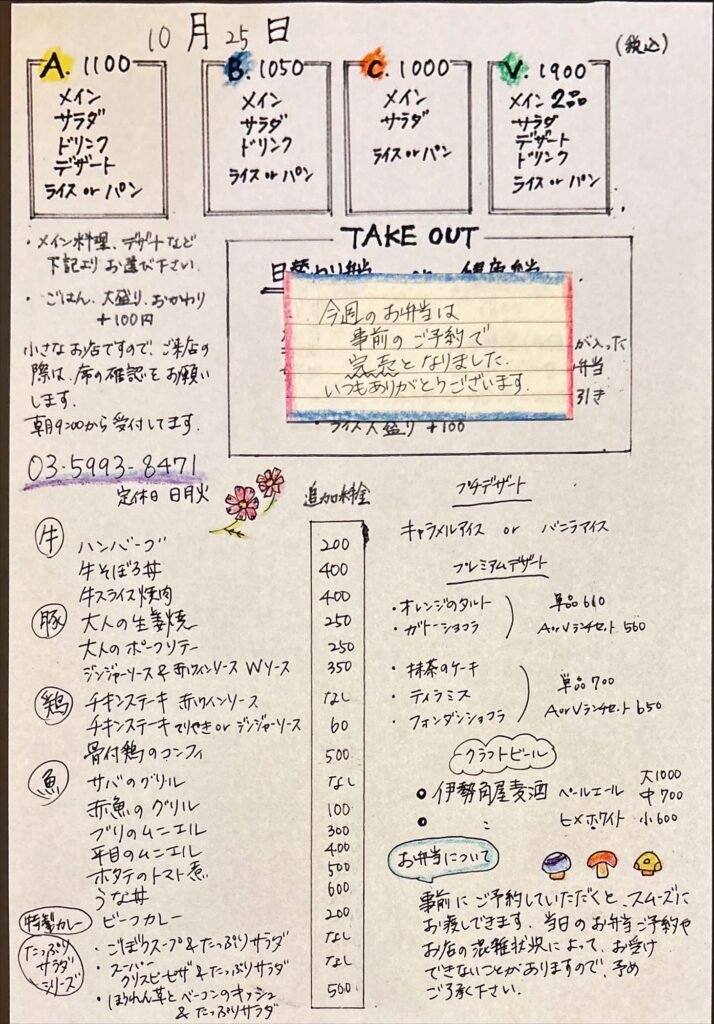 10月25日
(税込)
A. 1100
メイン
サラダ
ドリンク
デザート
ライス or パン
B. 1050
メイン
サラダ
ドリンク
ライス or パン
C. 1000
メイン
サラダ
ライス or パン
V. 1900
メイン 2品
サラダ
デザート
ドリンク
ライス or パン
・メイン料理、デザートなど
下記より お選び下さい.
・ごはん、大盛り、おかわり
+100円
小さなお店ですので、ご来店の
際は、席の確認をお願い
します.
朝9:00から受付してます.
03-5993-8471
定休日 日月火
TAKE OUT
日替わり弁当
今週のお弁当は
事前のご予約で
完売となりました.
いつもありがとうございます.
が入った
弁当
引き
・ライス大盛り +100
追加料金
牛
ハンバーグ 200
牛そぼろ丼 400
牛スライス焼肉 400
豚
大人の生姜焼 250
大人のポークソテー 250
ジンジャーソース & 赤ワインソース Wソース 350
鶏
チキンステーキ 赤ワインソース なし
チキンステーキ てりやき or ジンジャーソース 60
骨付鶏のコンフィ 500
魚
サバのグリル なし
赤魚のグリル 100
ブリのムニエル 300
平目のムニエル 400
ホタテのトマト煮 500
うな丼 600
特製カレー
ビーフカレー 200
たっぷり
サラダ
シリーズ
・ごぼうスープ & たっぷりサラダ なし
・スーパー
クリスピーピザ & たっぷりサラダ なし
・ほうれん草とベーコンのキッシュ
& たっぷりサラダ 500
プチデザート
キャラメルアイス or バニラアイス
プレミアムデザート
・オレンジのタルト
・ガトーショコラ
単品 610
A or Vランチセット 560
・抹茶のケーキ
・ティラミス
・フォンダンショコラ
単品 700
A or Vランチセット 650
クラフトビール
伊勢角屋麦酒 ペールエール
〃 ヒメホワイト
大1000
中 700
小 600
お弁当について
事前にご予約していただくと、スムーズに
お渡しできます. 当日のお弁当ご予約や
お店の混雑状況によって、お受け
できないことがありますので、予め
ご了承下さい.